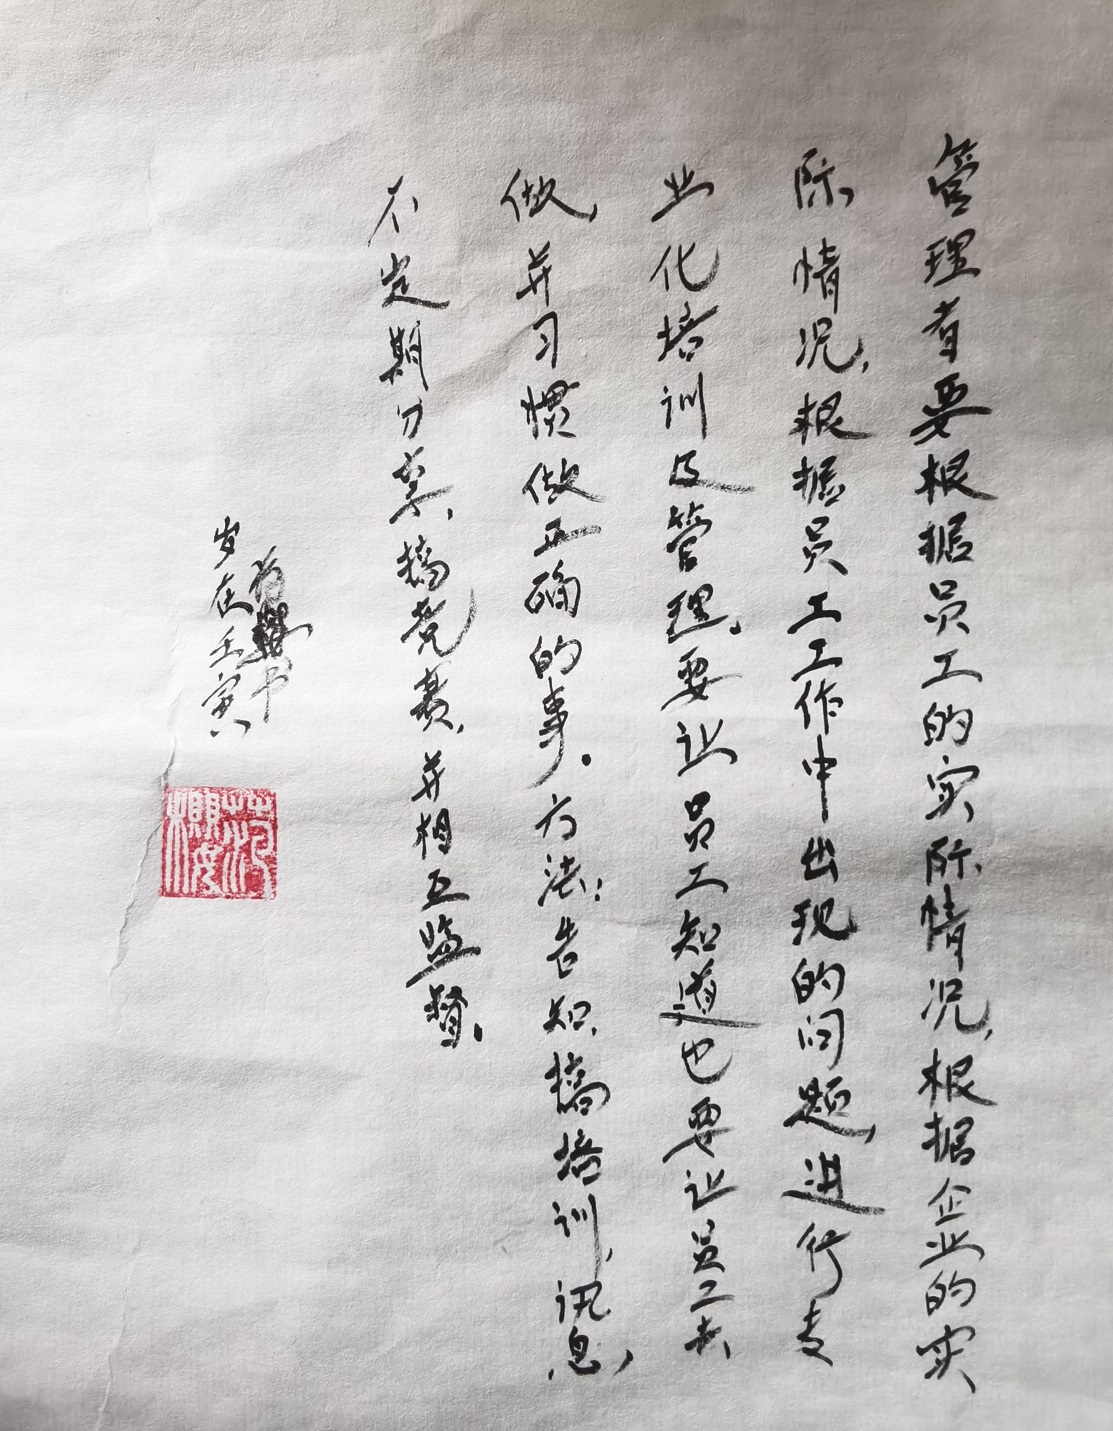 管理者要根据员工的实际情况，根据企业的实
际情况，根据员工工作中出现的问题，进行专
业化培训及管理。要让员工知道也要让员工去
做，并习惯做正确的事。方法：告知、搞培训，讯息，
不定期分享、搞竞赛，并相互监督。
岁在壬寅